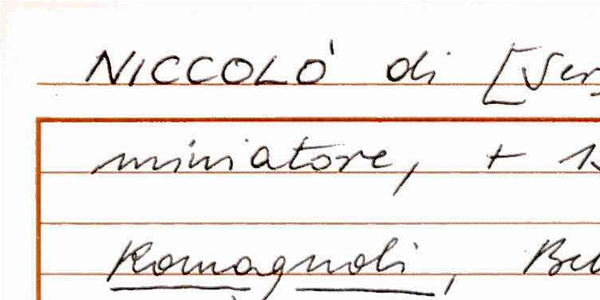 NICCOLÒ di [Ser
miniatore, + 15
Romagnoli,